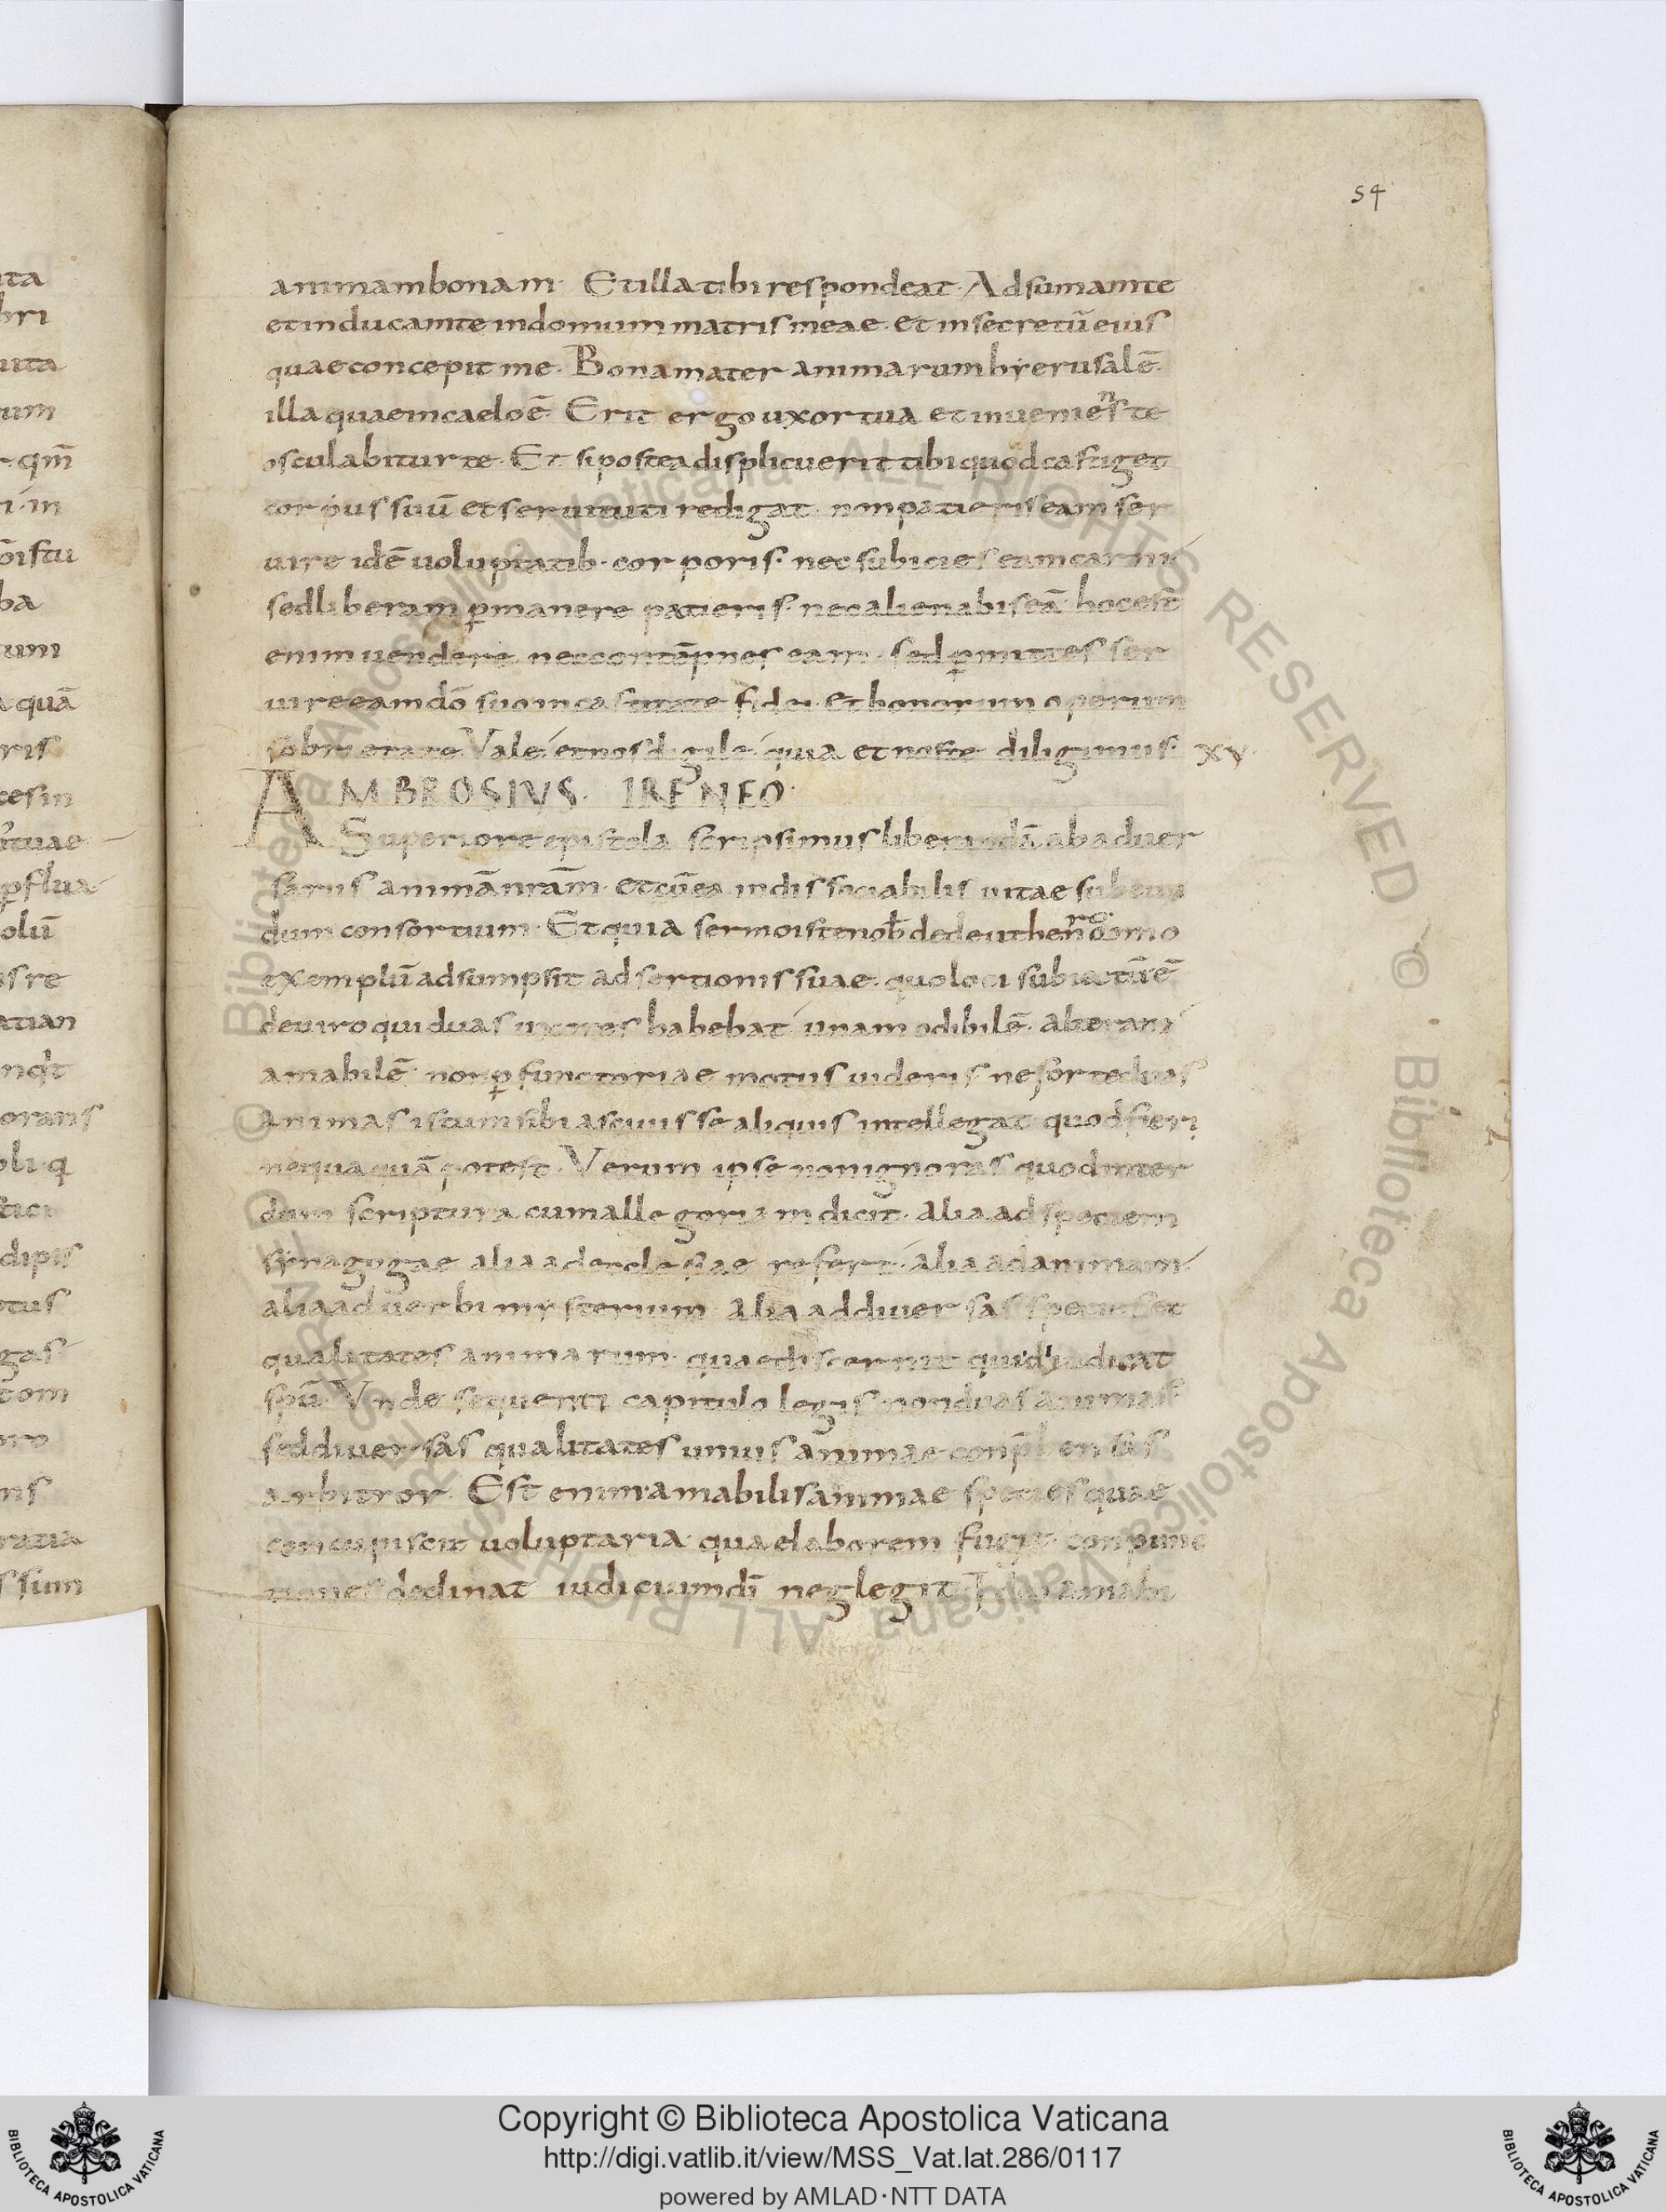 54
animam bonam. Et illa tibi respondeat. Adsumam te
et inducam te in domum matris meae. et in secretū eius
quae concepit me. Bona mater animarum hyerusalē.
illa quae in caelo ē. Erit ergo uxor tua et inueniens te
osculabitur te. Et si postea displicuerit tibi quod castiget
corpus suū et seruituti redigat. non patieris eam ser
uire idē uoluptatib· corporis. nec subicies eam carni
sed liberam p̱manere patieris. nec alienabis eā. hoc est
enim uendere. nec contēpnes eam. sed p̱mittes ser
uire eam dō suo in castitate fidei. et bonorum operum
sobrietate. Vale. et nos dilige. quia et nos te diligimus. XV.
AMBROSIVS. IRENEO.
Superiore epistola scripsimus liberandā ab aduer
sariis animā nrām. et cū ea indissociabilis uitae subeun
dum consortium. Et quia sermo iste nob̄ de deutheronomio
exemplū adsumpsit adsertionis suae. quo loci subiectū ē
de uiro qui duas uxores habebat unam odibilē. alteram
amabilē. non p̱functoriae motus uideris ne forte duas
animas istum sibi asciuisse aliquis intellegat. quod fieri
nequaquā potest. Verum ipse non ignoras quod inter
dum scriptura cum allegoriam dicit. alia ad speciem
synagogae alia ad ecclesiae refert. alia ad animam.
alia ad uerbi mysterium. alia ad diuersas species et
qualitates animarum. quae discernit qui diiudicat
spū. Vnde sequenti capitulo legis. non duas animas.
sed diuersas qualitates unius animae conp̄hensas
arbitror. Est enim amabilis animae species quae
concupiscit uoluptaria. quae laborem fugit. conpunc
tiones declinat iudicium dī neglegit.
ita
bri
uita
rum
qm̄
in
ba
tum
quā
ris
tes in
tuae
p̱flua
olū
os re
atian
orans
stici
dipis
otus
gas
com
oro
ns
ratia
s sum
© Biblioteca Apostolica Vaticana ALL RIGHTS RESERVED
© Biblioteca Apostolica Vaticana ALL RIGHTS RESERVED
Copyright © Biblioteca Apostolica Vaticana
http://digi.vatlib.it/view/MSS_Vat.lat.286/0117
powered by AMLAD·NTT DATA
BIBLIOTECA APOSTOLICA VATICANA
BIBLIOTECA APOSTOLICA VATICANA